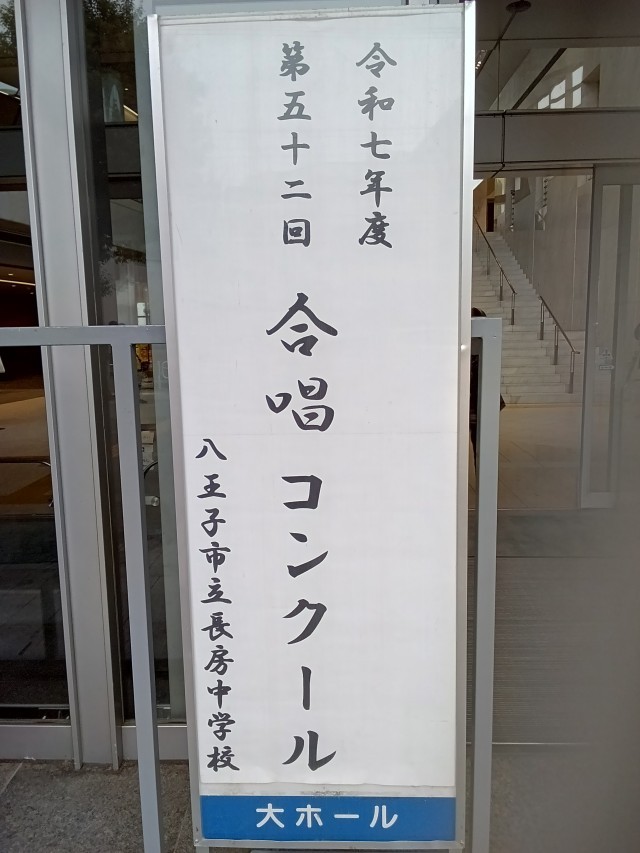 令和七年度
第五十二回 合唱コンクール
八王子市立長房中学校
大ホール